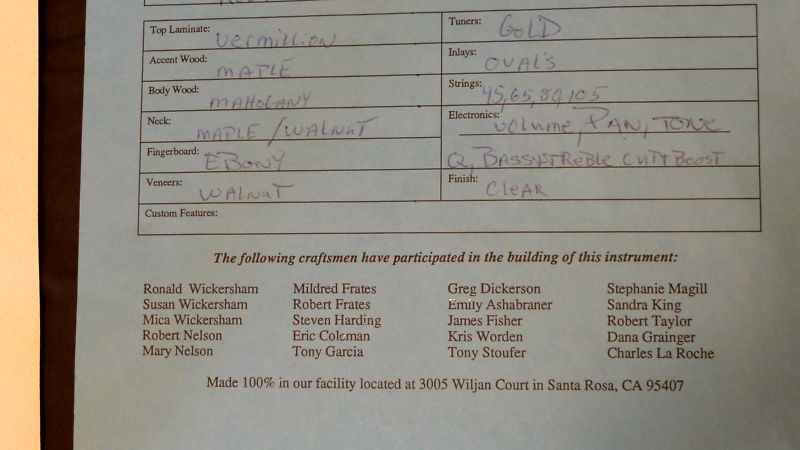 Top Laminate: Vermillion
Tuners: GOLD
Accent Wood: MAPLE
Inlays: OVALS
Body Wood: MAHOGANY
Strings: 45,65,80,105
Neck: MAPLE/WALNUT
Electronics: Volume, PAN, TONE
Fingerboard: EBONY
Q, BASS+TReBle CUT+BOOST
Veneers: WALNUT
Finish: CleAR
Custom Features:
The following craftsmen have participated in the building of this instrument:
Ronald Wickersham Mildred Frates Greg Dickerson Stephanie Magill
Susan Wickersham Robert Frates Emily Ashabraner Sandra King
Mica Wickersham Steven Harding James Fisher Robert Taylor
Robert Nelson Eric Coleman Kris Worden Dana Grainger
Mary Nelson Tony Garcia Tony Stoufer Charles La Roche
Made 100% in our facility located at 3005 Wiljan Court in Santa Rosa, CA 95407